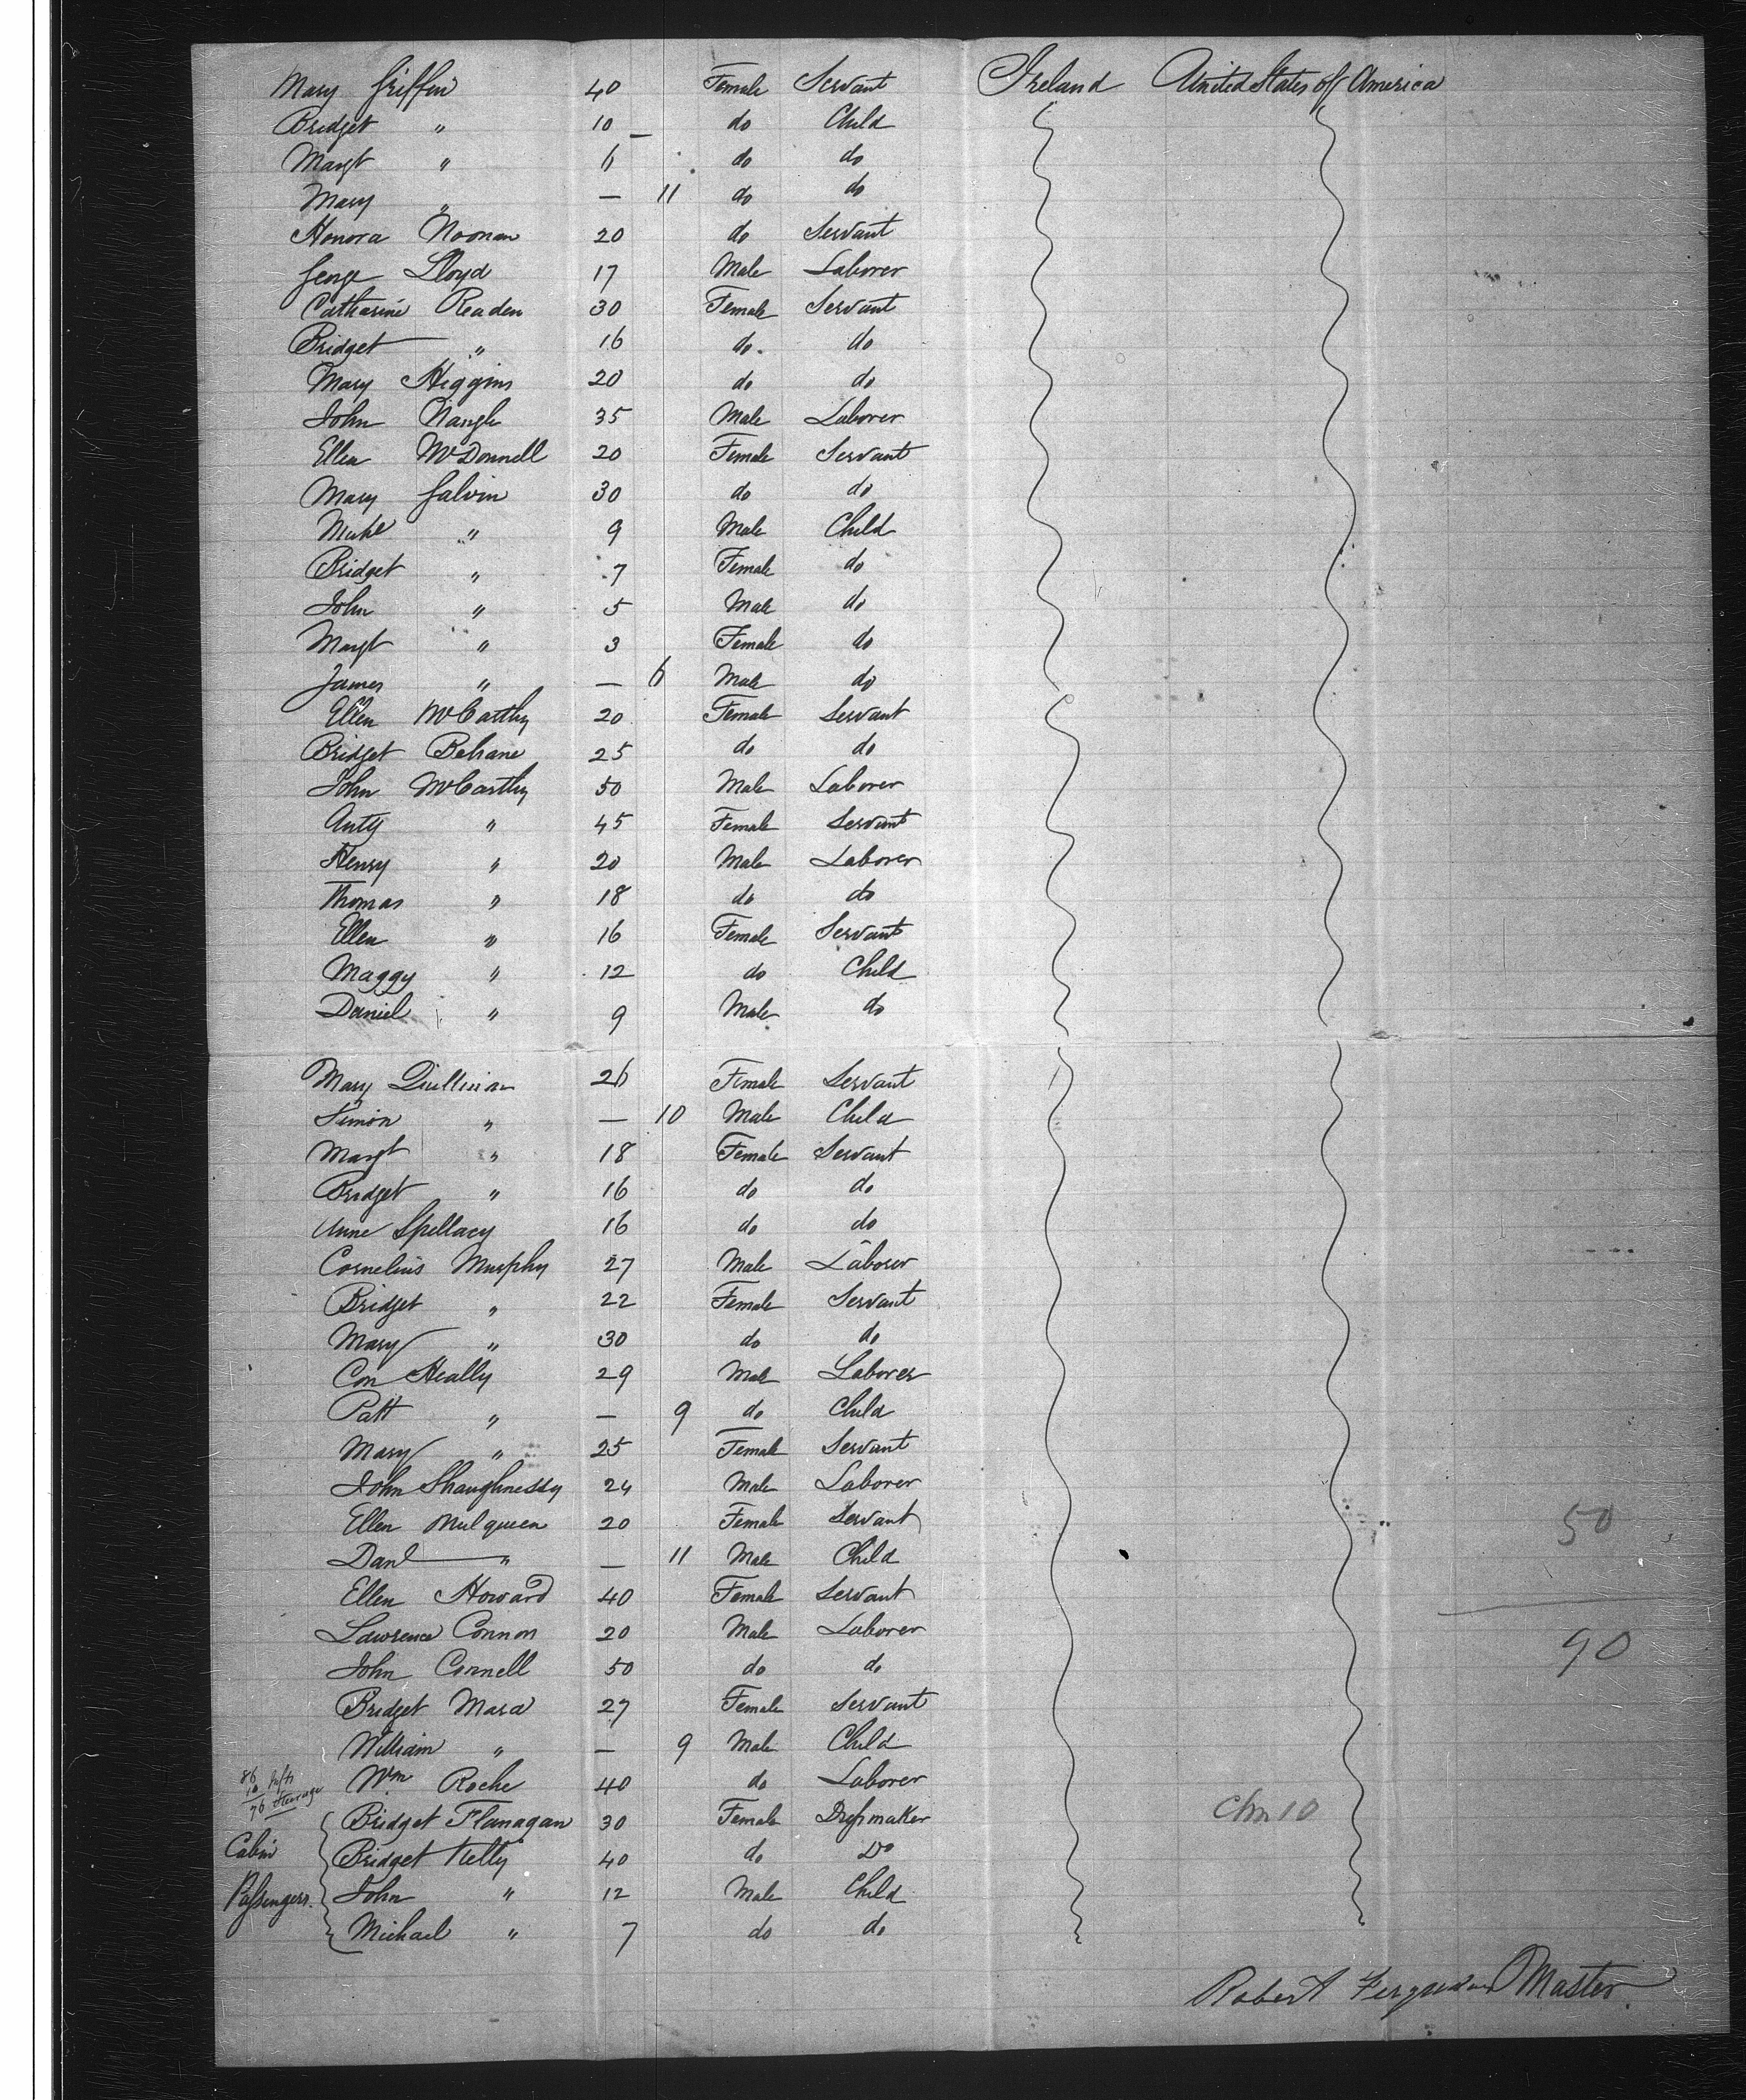 Mary Griffin 40 Female Servant Ireland United States of America
Bridget " 10 do Child
Margt " 6 do do
Mary " — 11 do do
Honora Noonan 20 do Servant
George Lloyd 17 Male Laborer
Catharine Readen 30 Female Servant
Bridget " 16 do do
Mary Higgins 20 do do
John Nangle 35 Male Laborer
Ellen McDonnell 20 Female Servant
Mary Galvin 30 do do
Michl " 9 Male Child
Bridget " 7 Female do
John " 5 Male do
Margt " 3 Female do
James " — 6 Male do
Ellen McCarthy 20 Female Servant
Bridget Behane 25 do do
John McCarthy 50 Male Laborer
Anty " 45 Female Servant
Henry " 20 Male Laborer
Thomas " 18 do do
Ellen " 16 Female Servant
Maggy " 12 do Child
Daniel " 9 Male do
Mary Quillinan 26 Female Servant
Simon " — 10 Male Child
Margt " 18 Female Servant
Bridget " 16 do do
Anne Spellacy 16 do do
Cornelius Murphy 27 Male Laborer
Bridget " 22 Female Servant
Mary " 30 do do
Con Heally 29 Male Laborer
Patt " — 9 do Child
Mary " 25 Female Servant
John Shaughnessy 24 Male Laborer
Ellen Mulqueen 20 Female Servant 50
Danl " — 11 Male Child
Ellen Howard 40 Female Servant
Lawrence Connon 20 Male Laborer 90
John Connell 50 do do
Bridget Mara 27 Female Servant
William " — 9 Male Child
86
10
76 Steerage
Wm Roche 40 do Laborer
Bridget Flanagan 30 Female Dressmaker Chn 10
Cabin Bridget Kelly 40 do Do
Passengers. John " 12 Male Child
Michael " 7 do do
Robert Ferguson Master.